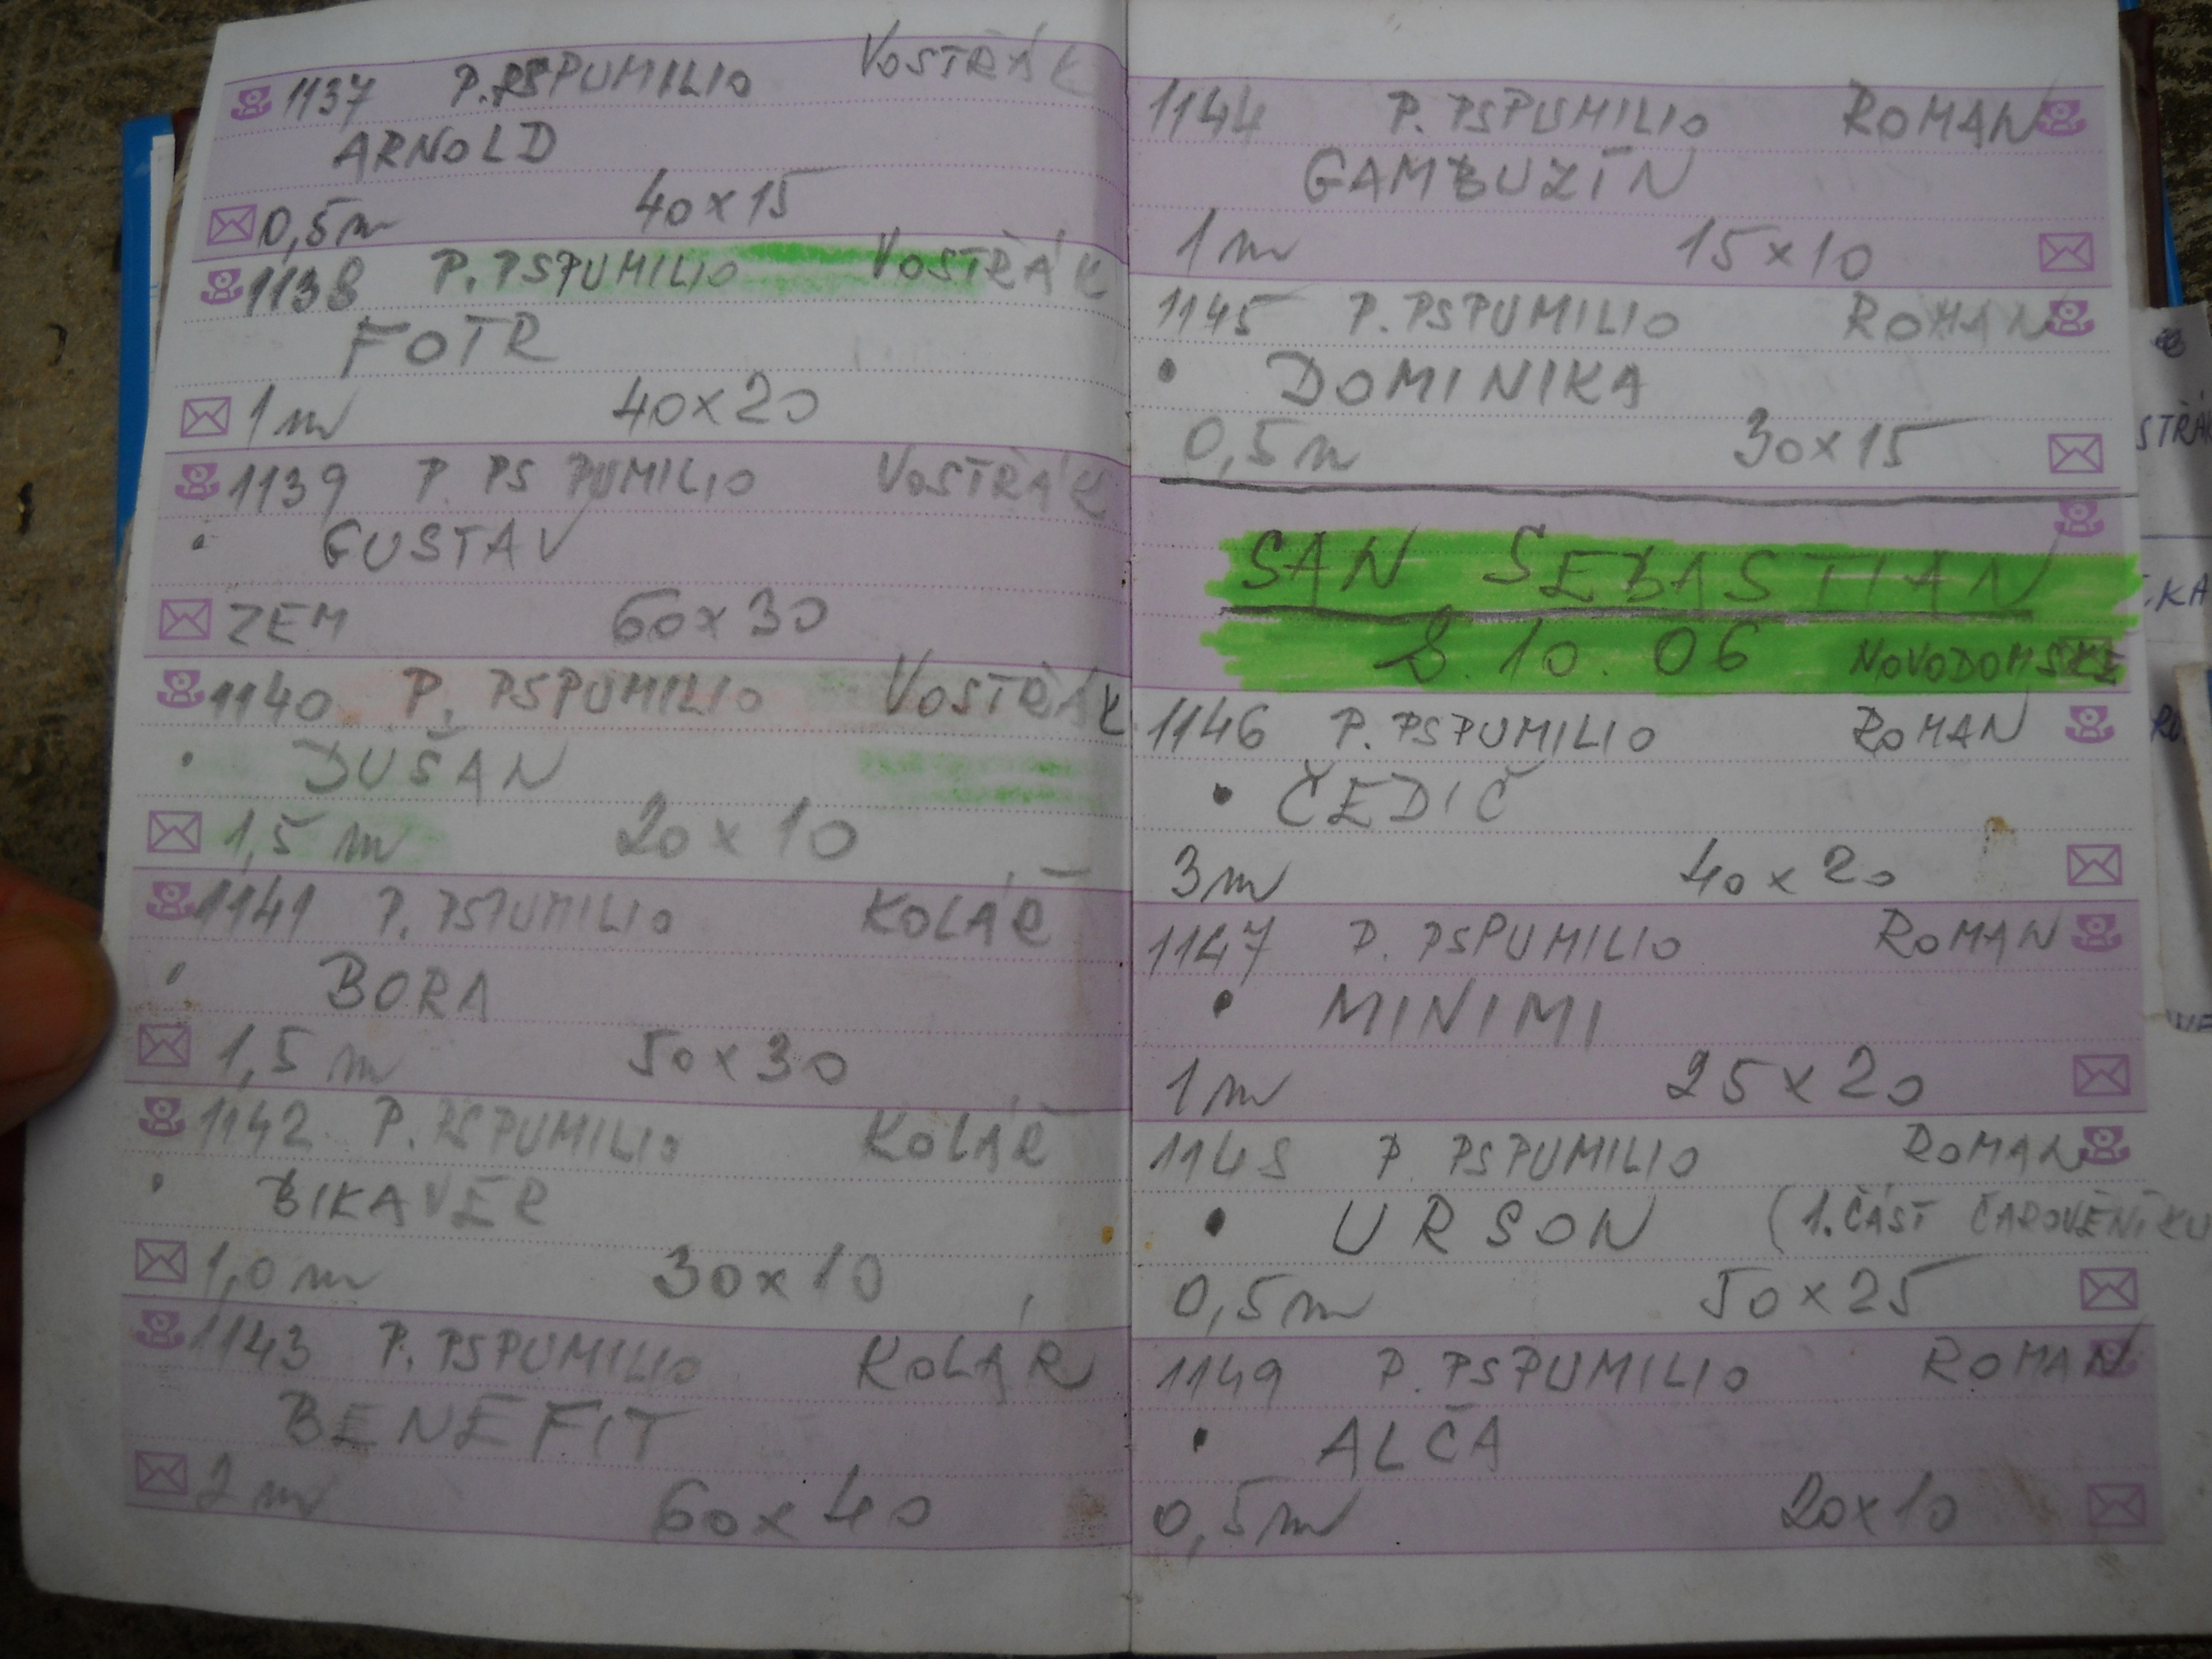 1137 P. PSPUMILIO VOSTŘÁK
ARNOLD
0,5m 40x15
1138 P. PSPUMILIO VOSTŘÁK
FOTR
1m 40x20
1139 P. PS PUMILIO VOSTŘÁK
GUSTAV
ZEM 60x30
1140 P. PSPUMILIO VOSTŘÁK
DUŠAN
1,5 m 20x10
1141 P. PSPUMILIO KOLÁŘ
BORA
1,5 m 50x30
1142 P. PSPUMILIO KOLÁŘ
BIKAVER
1,0 m 30x10
1143 P. PSPUMILIO KOLÁŘ
BENEFIT
2m 60x40
1144 P. PSPUMILIO ROMAN
GAMBUZÍN
1m 15x10
1145 P. PSPUMILIO ROMAN
• DOMINIKA
0,5m 30x15
SAN SEBASTIAN
8. 10. 06 NOVODOMSKÉ
1146 P. PSPUMILIO ROMAN
• ČEDIČ
3m 40x20
1147 P. PSPUMILIO ROMAN
• MINIMI
1m 25x20
1148 P PSPUMILIO ROMAN
• URSON (1. ČÁST ČAROVĚNÍKU
0,5m 50x25
1149 P. PSPUMILIO ROMAN
• ALČA
0,5m 20x10